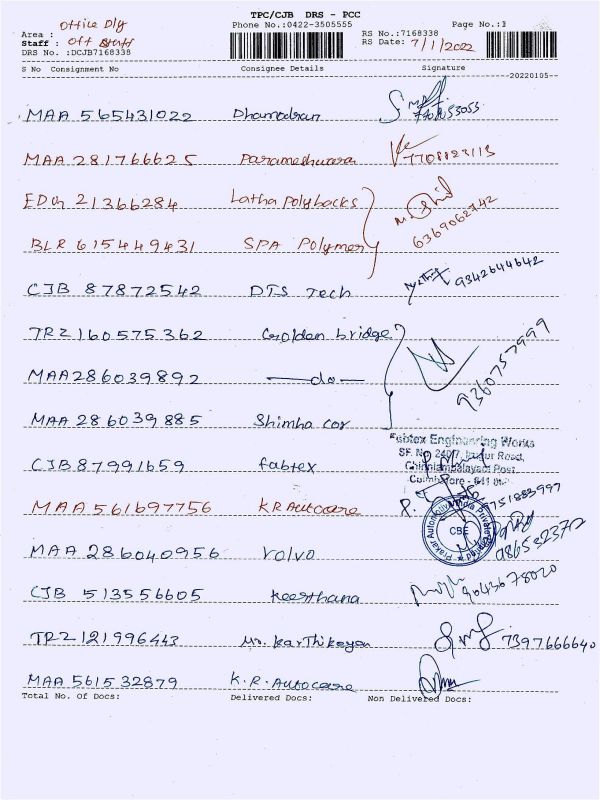 TPC/CJB DRS - PCC
Phone No:0422-3505555 Page No.:1
Area : Office Dly
Staff : Off Staff
DRS No. :DCJB7168338
RS No.:7168338
RS Date: 7/1/2022
S No Consignment No Consignee Details Signature
20220105
MAA 565431022 Dhamodran
MAA 281766625 Parameshwara 7708823113
EDQ 21366284 Latha Polybacks
BLR 615449431 SPA Polymer 6369062742
CJB 87872542 DTS Tech 9342644642
TRZ 160575362 Golden bridge
MAA 286039892 —do— 9360757999
MAA 286039885 Shimha cor
Fabtex Engineering Works
CJB 87991659 fabtex
Coimbatore - 641
MAA 561697756 KR Autocare 9751882997
CBE
MAA 286040956 Volvo
CJB 513556605 Keerthana 9643678020
TRZ 121996443 Mr. Karthikeyan 7397666640
MAA 561532879 K.R. Autocare
Total No. Of Docs: Delivered Docs: Non Delivered Docs: